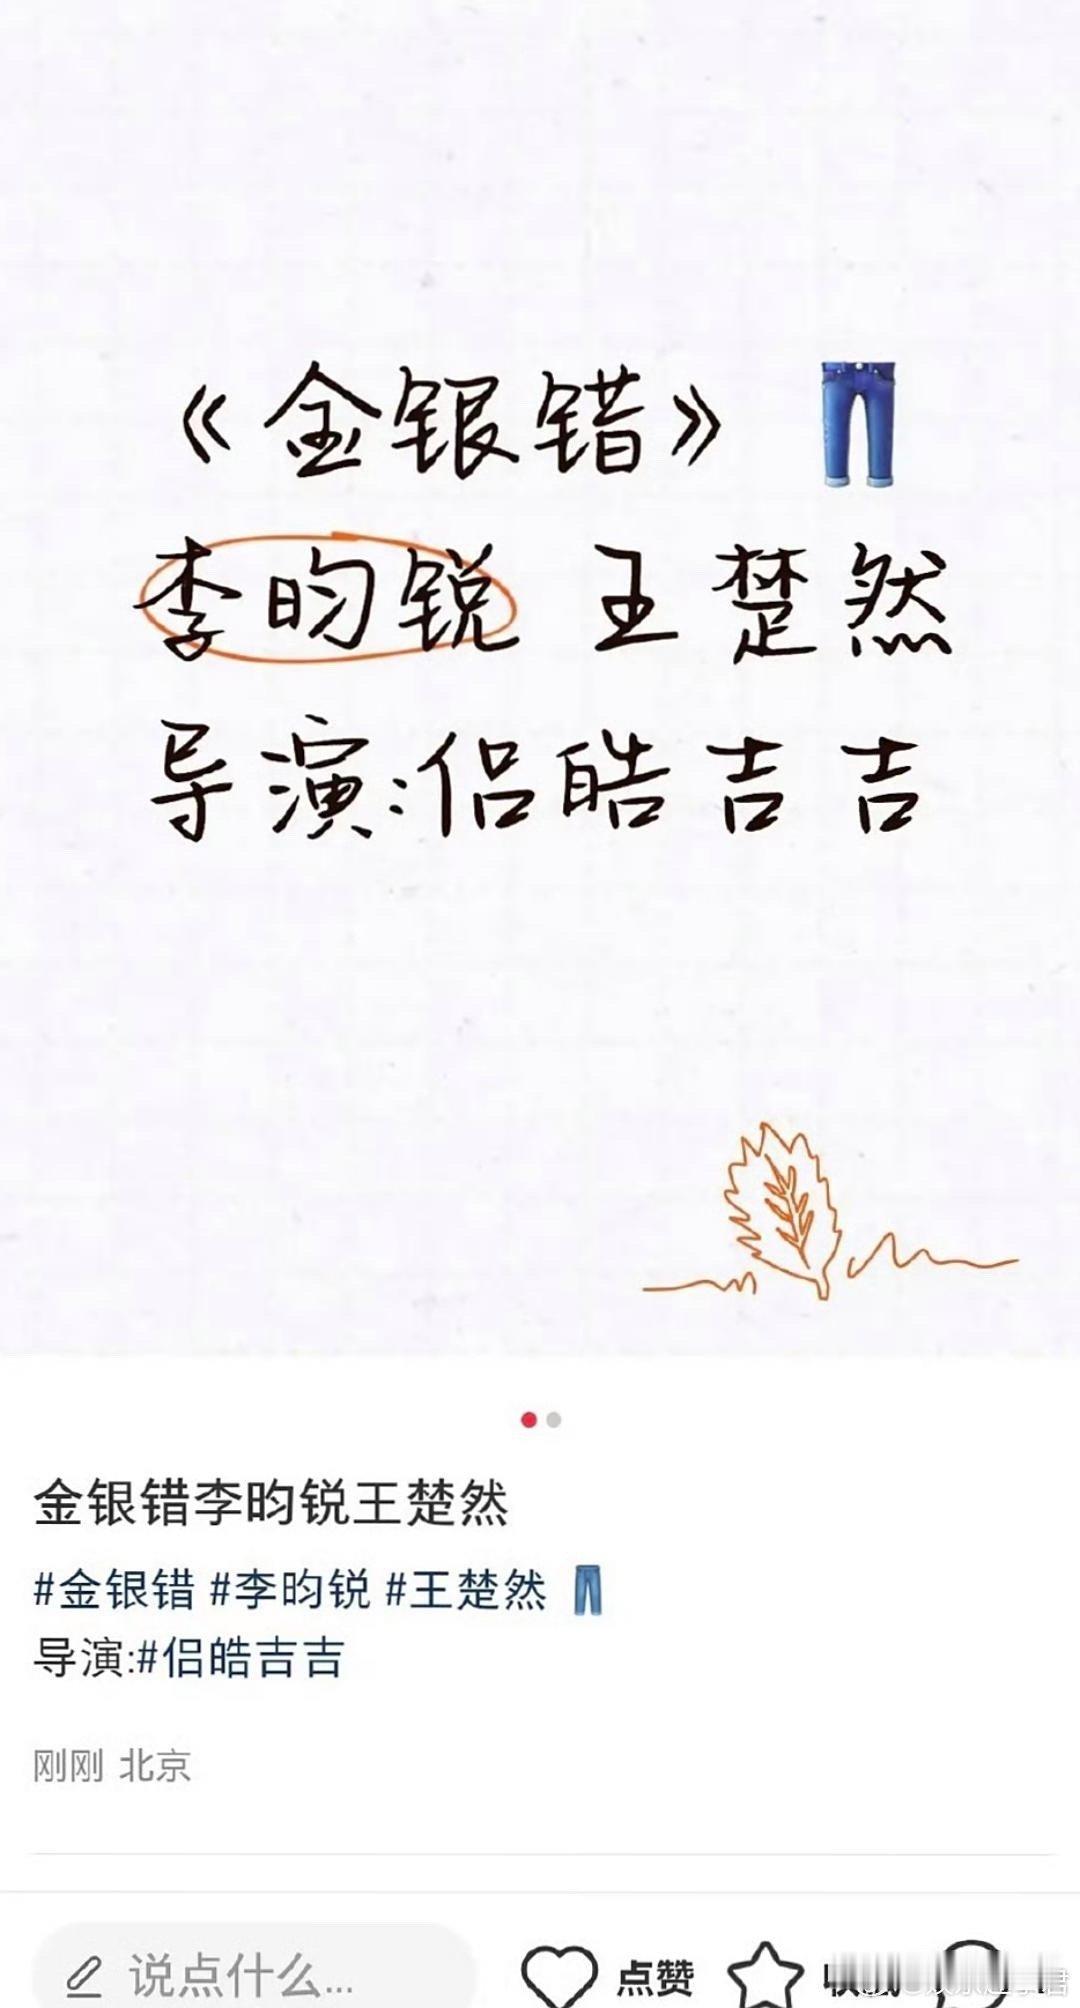 《金银错》👖
李昀锐 王楚然
导演:侣皓吉吉
金银错李昀锐王楚然
#金银错 #李昀锐 #王楚然 👖
导演:#侣皓吉吉
刚刚 北京
说点什么... 点赞